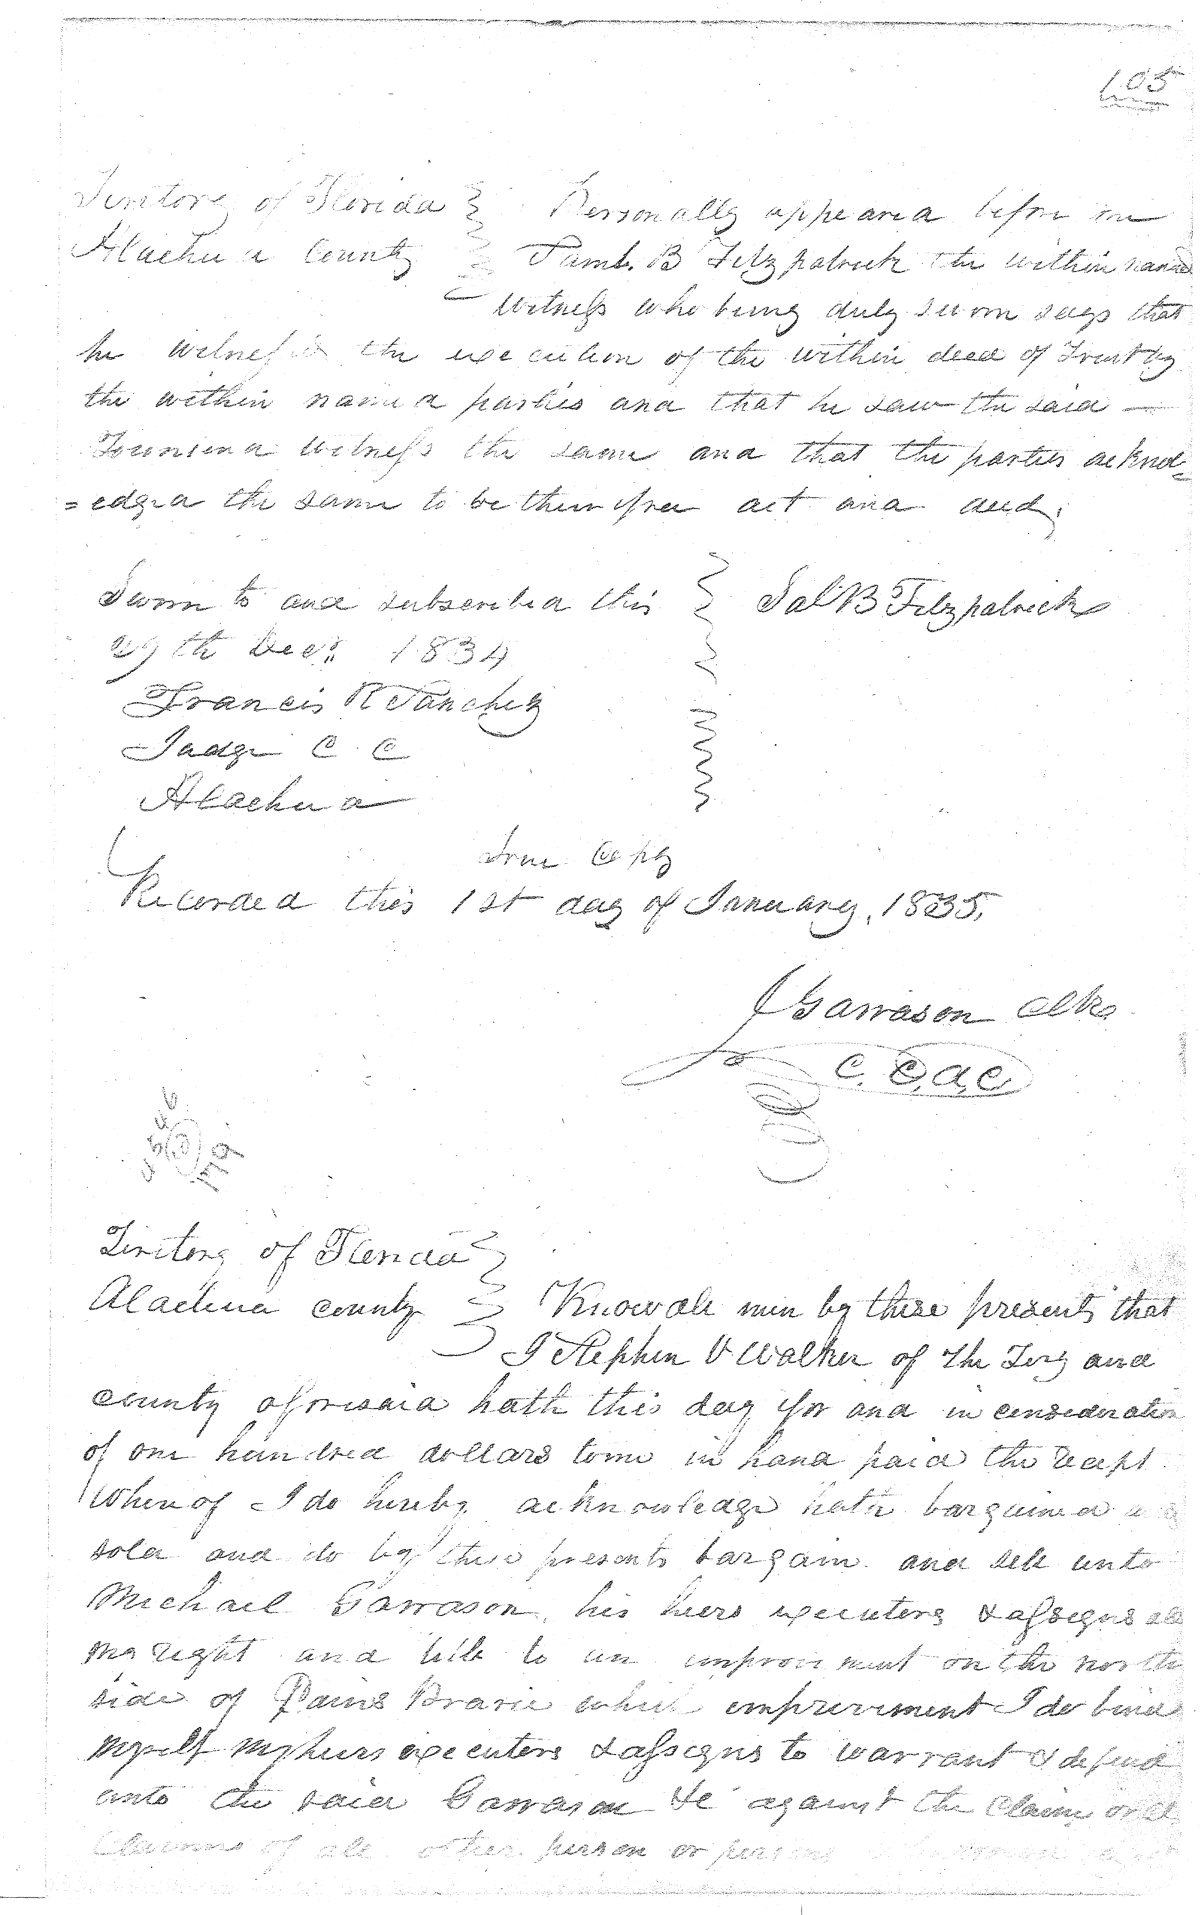 105
Territory of Florida Personally appeared before me
Alachua County Saml. B Fitzpatrick the within named
witness who being duly sworn says that
he witnessed the execution of the within deed of Trust by
the within named parties and that he saw the said —
Townsend witness the same and that the parties acknol=
=edged the same to be their free act and deed.
Sworn to and subscribed this Sal B Fitzpatrick
29th Decr. 1834
Francis R Sanchez
Judge C. C
Alachua
True Copy
Recorded this 1st day of January, 1835,
Garrason Clk
C. C. A. C
Territory of Florida
Alachua county Know all men by these presents that
I Stephen V Walker of the Tery and
county aforesaid hath this day for and in consideration
of one hundred dollars to me in hand paid the recept
whereof I do hereby acknowledge hath bargained and
sold and do by these presents bargain and sell unto
Michael Garrason, his heirs executers & assigns all
my right and title to an improvement on the north
side of Pains Prarie which imprevement I do bind
myself my heirs executers & assigns to warrant & defend
unto the said Garrason &c against the claim or
claims of all other person or persons